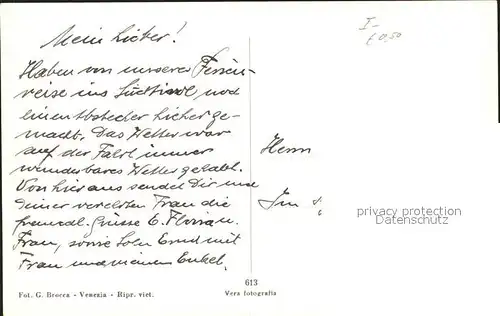 Mein Lieber!
Haben von unserer Ferien-
reise ins Südtirol, noch
einen Abstecher hieher ge-
macht. Das Wetter war
auf der Fahrt immer
wunderbares Wetter gehabt.
Von hier aus sendet Dir und
Deiner verehrten Frau die
freundl. Grüsse E. Florian
Frau, sowie Sohn Ernst mit
Frau und meinen Enkel.
I-
€ 0,50
Herrn
privacy protection
Datenschutz
613
Fot. G. Brocca - Venezia - Ripr. viet.
Vera fotografia